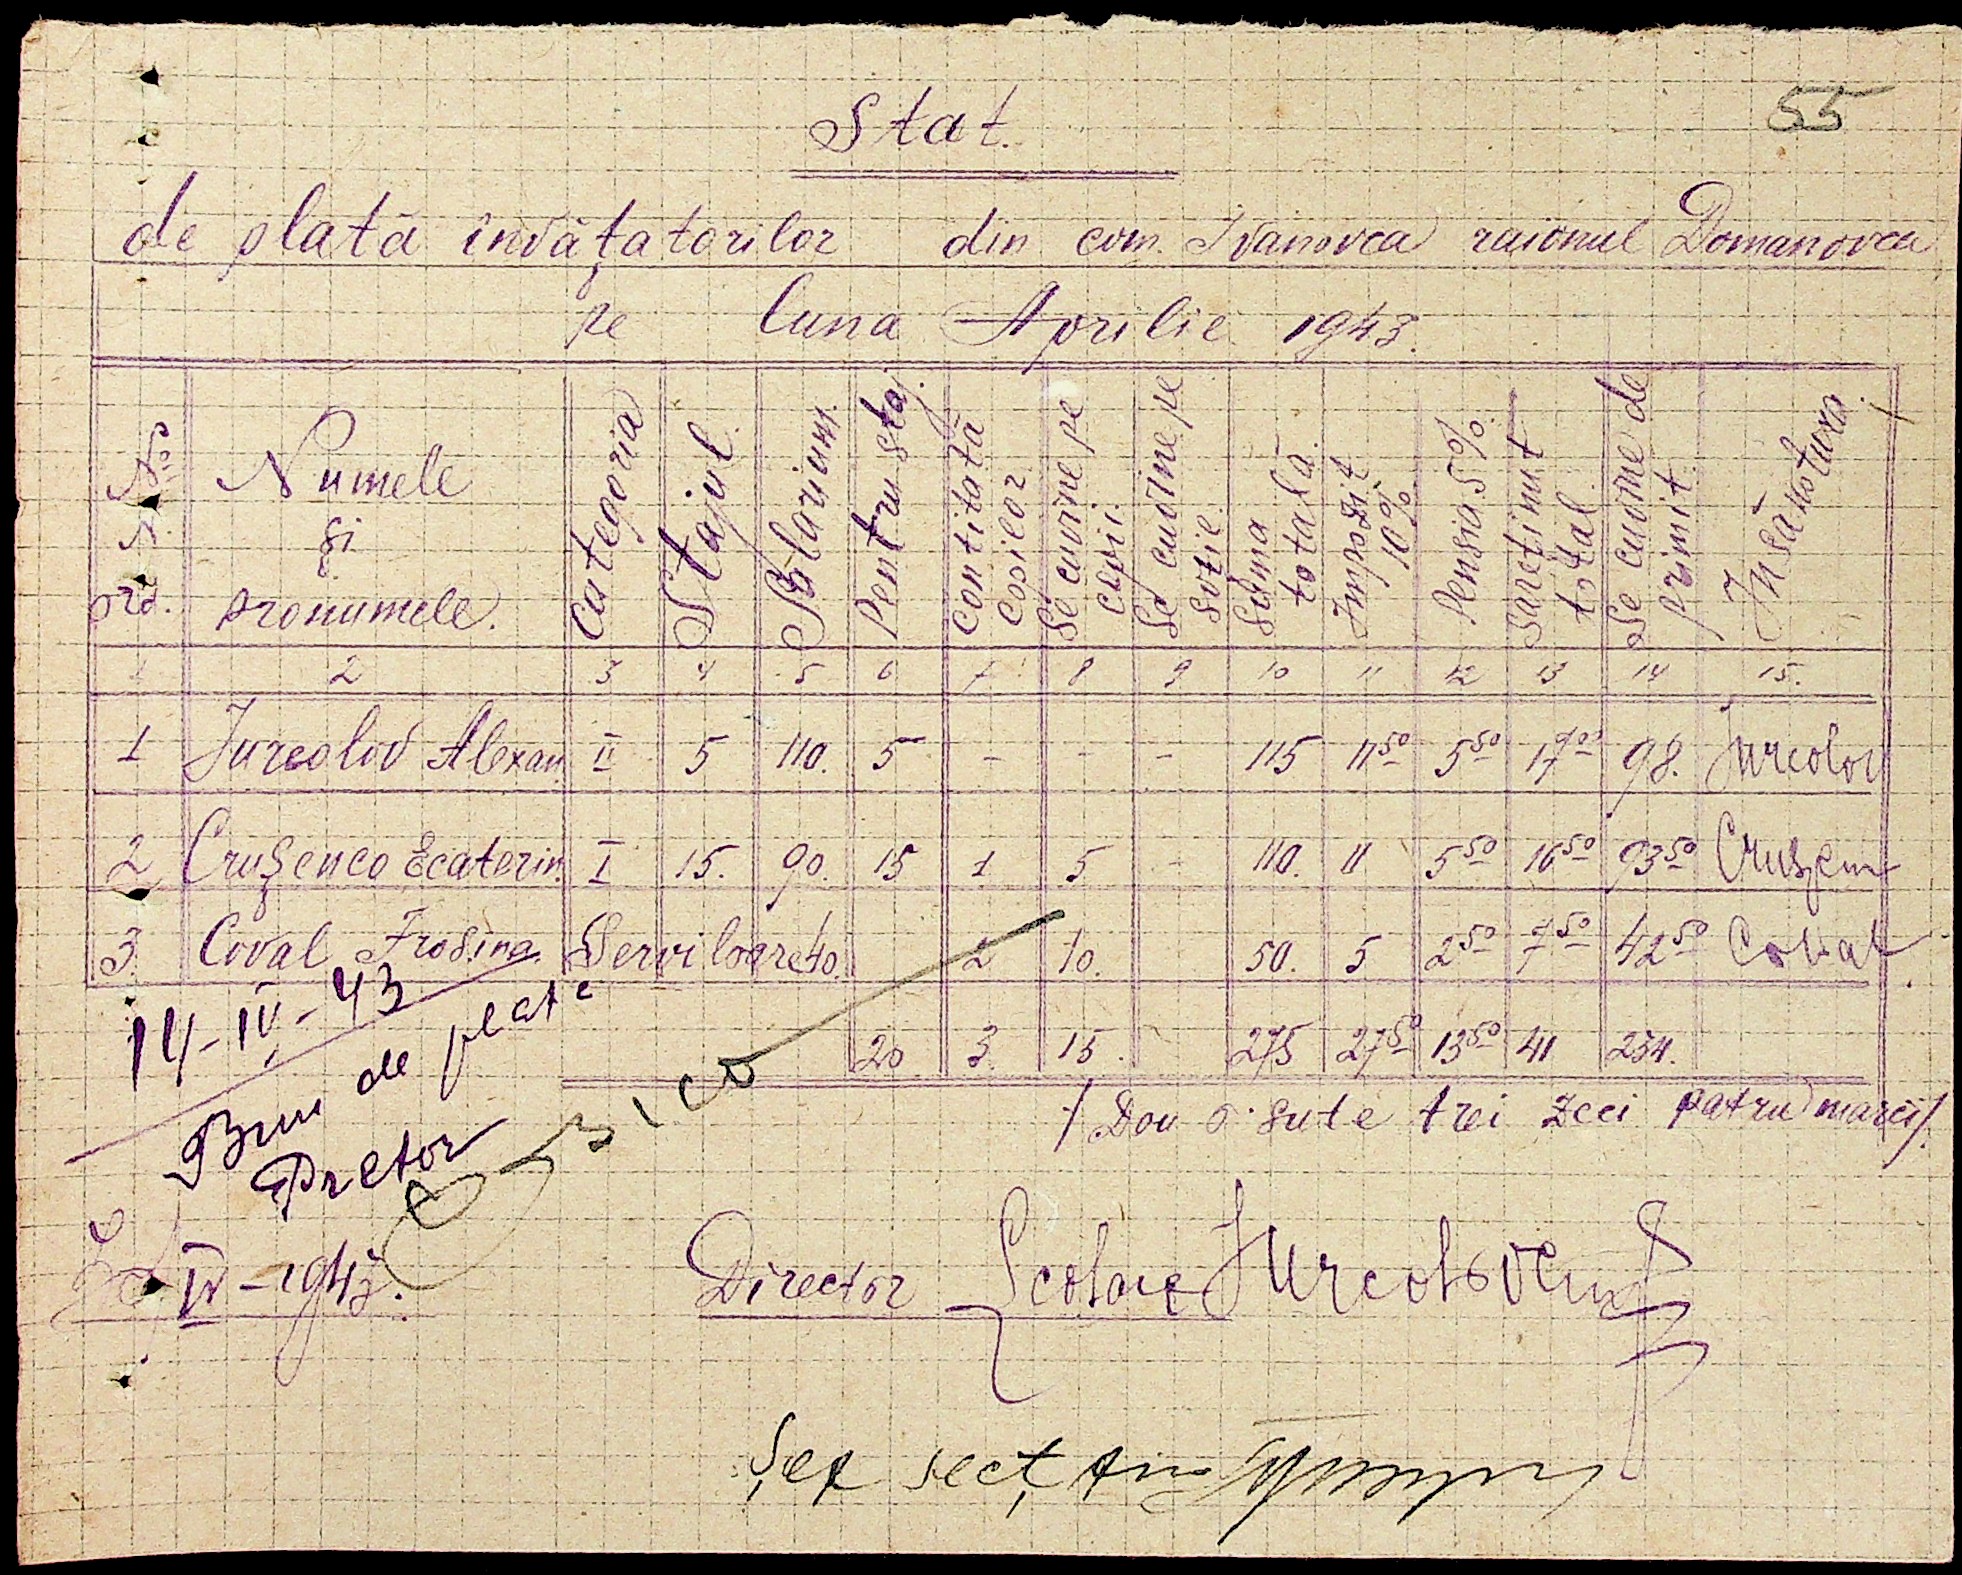 55
Stat.
de plată învățatorilor din com. Ivanovca raionul Domanovca
pe luna Aprilie 1943.
№ ord. Numele și pronumele. Categoria Stajul. Salarium. Pentru staj. Contitată copilor Se cuvine pe copii. Se cuvine pe soție. Suma totală. Impozit 10% Pensia 5% Sareținut total. Se cuvine de primit Insănotura.
1 2 3 4 5 6 7 8 9 10 11 12 13 14 15.
1 Jurcolov Alexan II 5 110. 5 - - - 115 11 50 5 50 17 00 98. Jurcolov
2 Crușenco Ecaterin. I 15. 90. 15 1 5 - 110. 11 5 50 16 50 93 50 Crușem
3 Coval Frosina. Serviloare 40. 2 10. 50. 5 2 50 7 50 42 50 Coval
20 3. 15. 275 27 50 13 50 41 234.
/Dou o sute trei zeci patru marci/.
14-IV-43
Bun de plată
Pretor
IV-1943.
Director Școlare Jurcolov
Șef secț fin